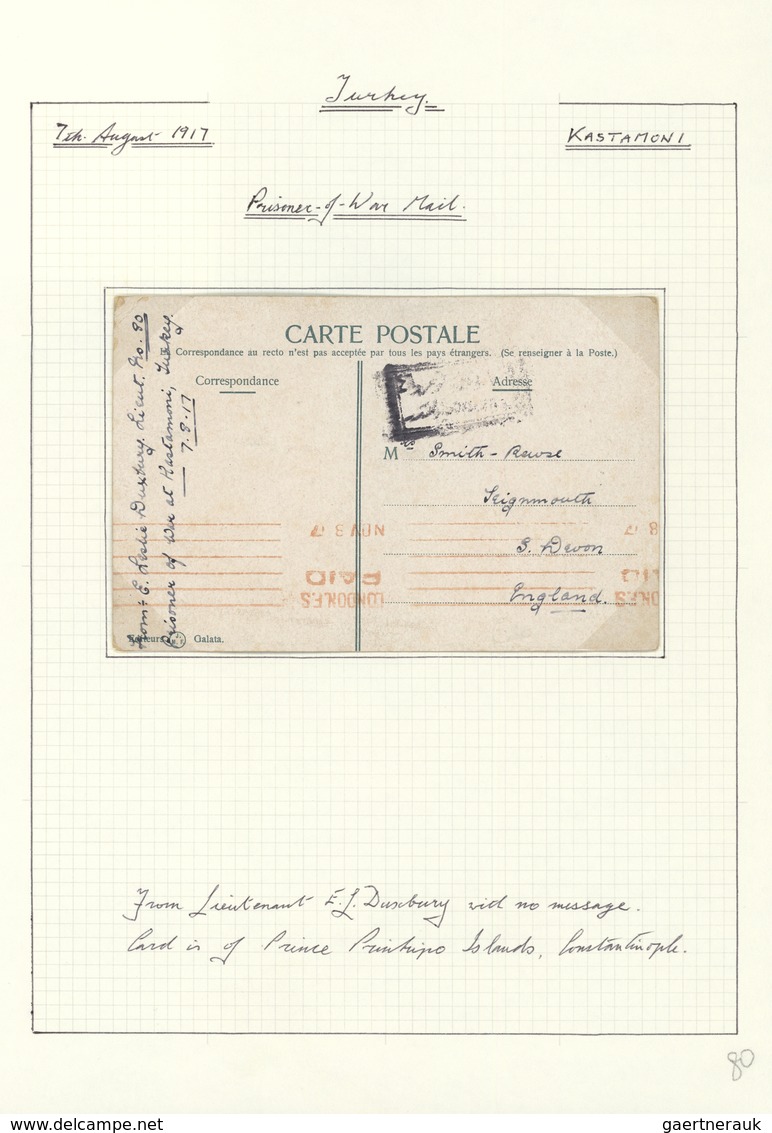 Turkey.
7th. August 1917
KASTAMONI
Prisoner-of-War Mail.
CARTE POSTALE
Correspondance au recto n'est pas acceptée par tous les pays étrangers. (Se renseigner à la Poste.)
Correspondance
Adresse
From:- E. Leslie Duxbury. Lieut. No. 90
Prisoner of War at Kastamoni, Turkey.
7.8.17
Mrs Smith-Rewse
Teignmouth
S. Devon
England.
NOV 3 17
PAID
LONDON.F.S
8 17
Editeurs
Galata.
From Lieutenant E.L. Duxbury with no message.
Card is of Prince Prinkipo Islands, Constantinople.
80
delcampe.net
gaertnerauk